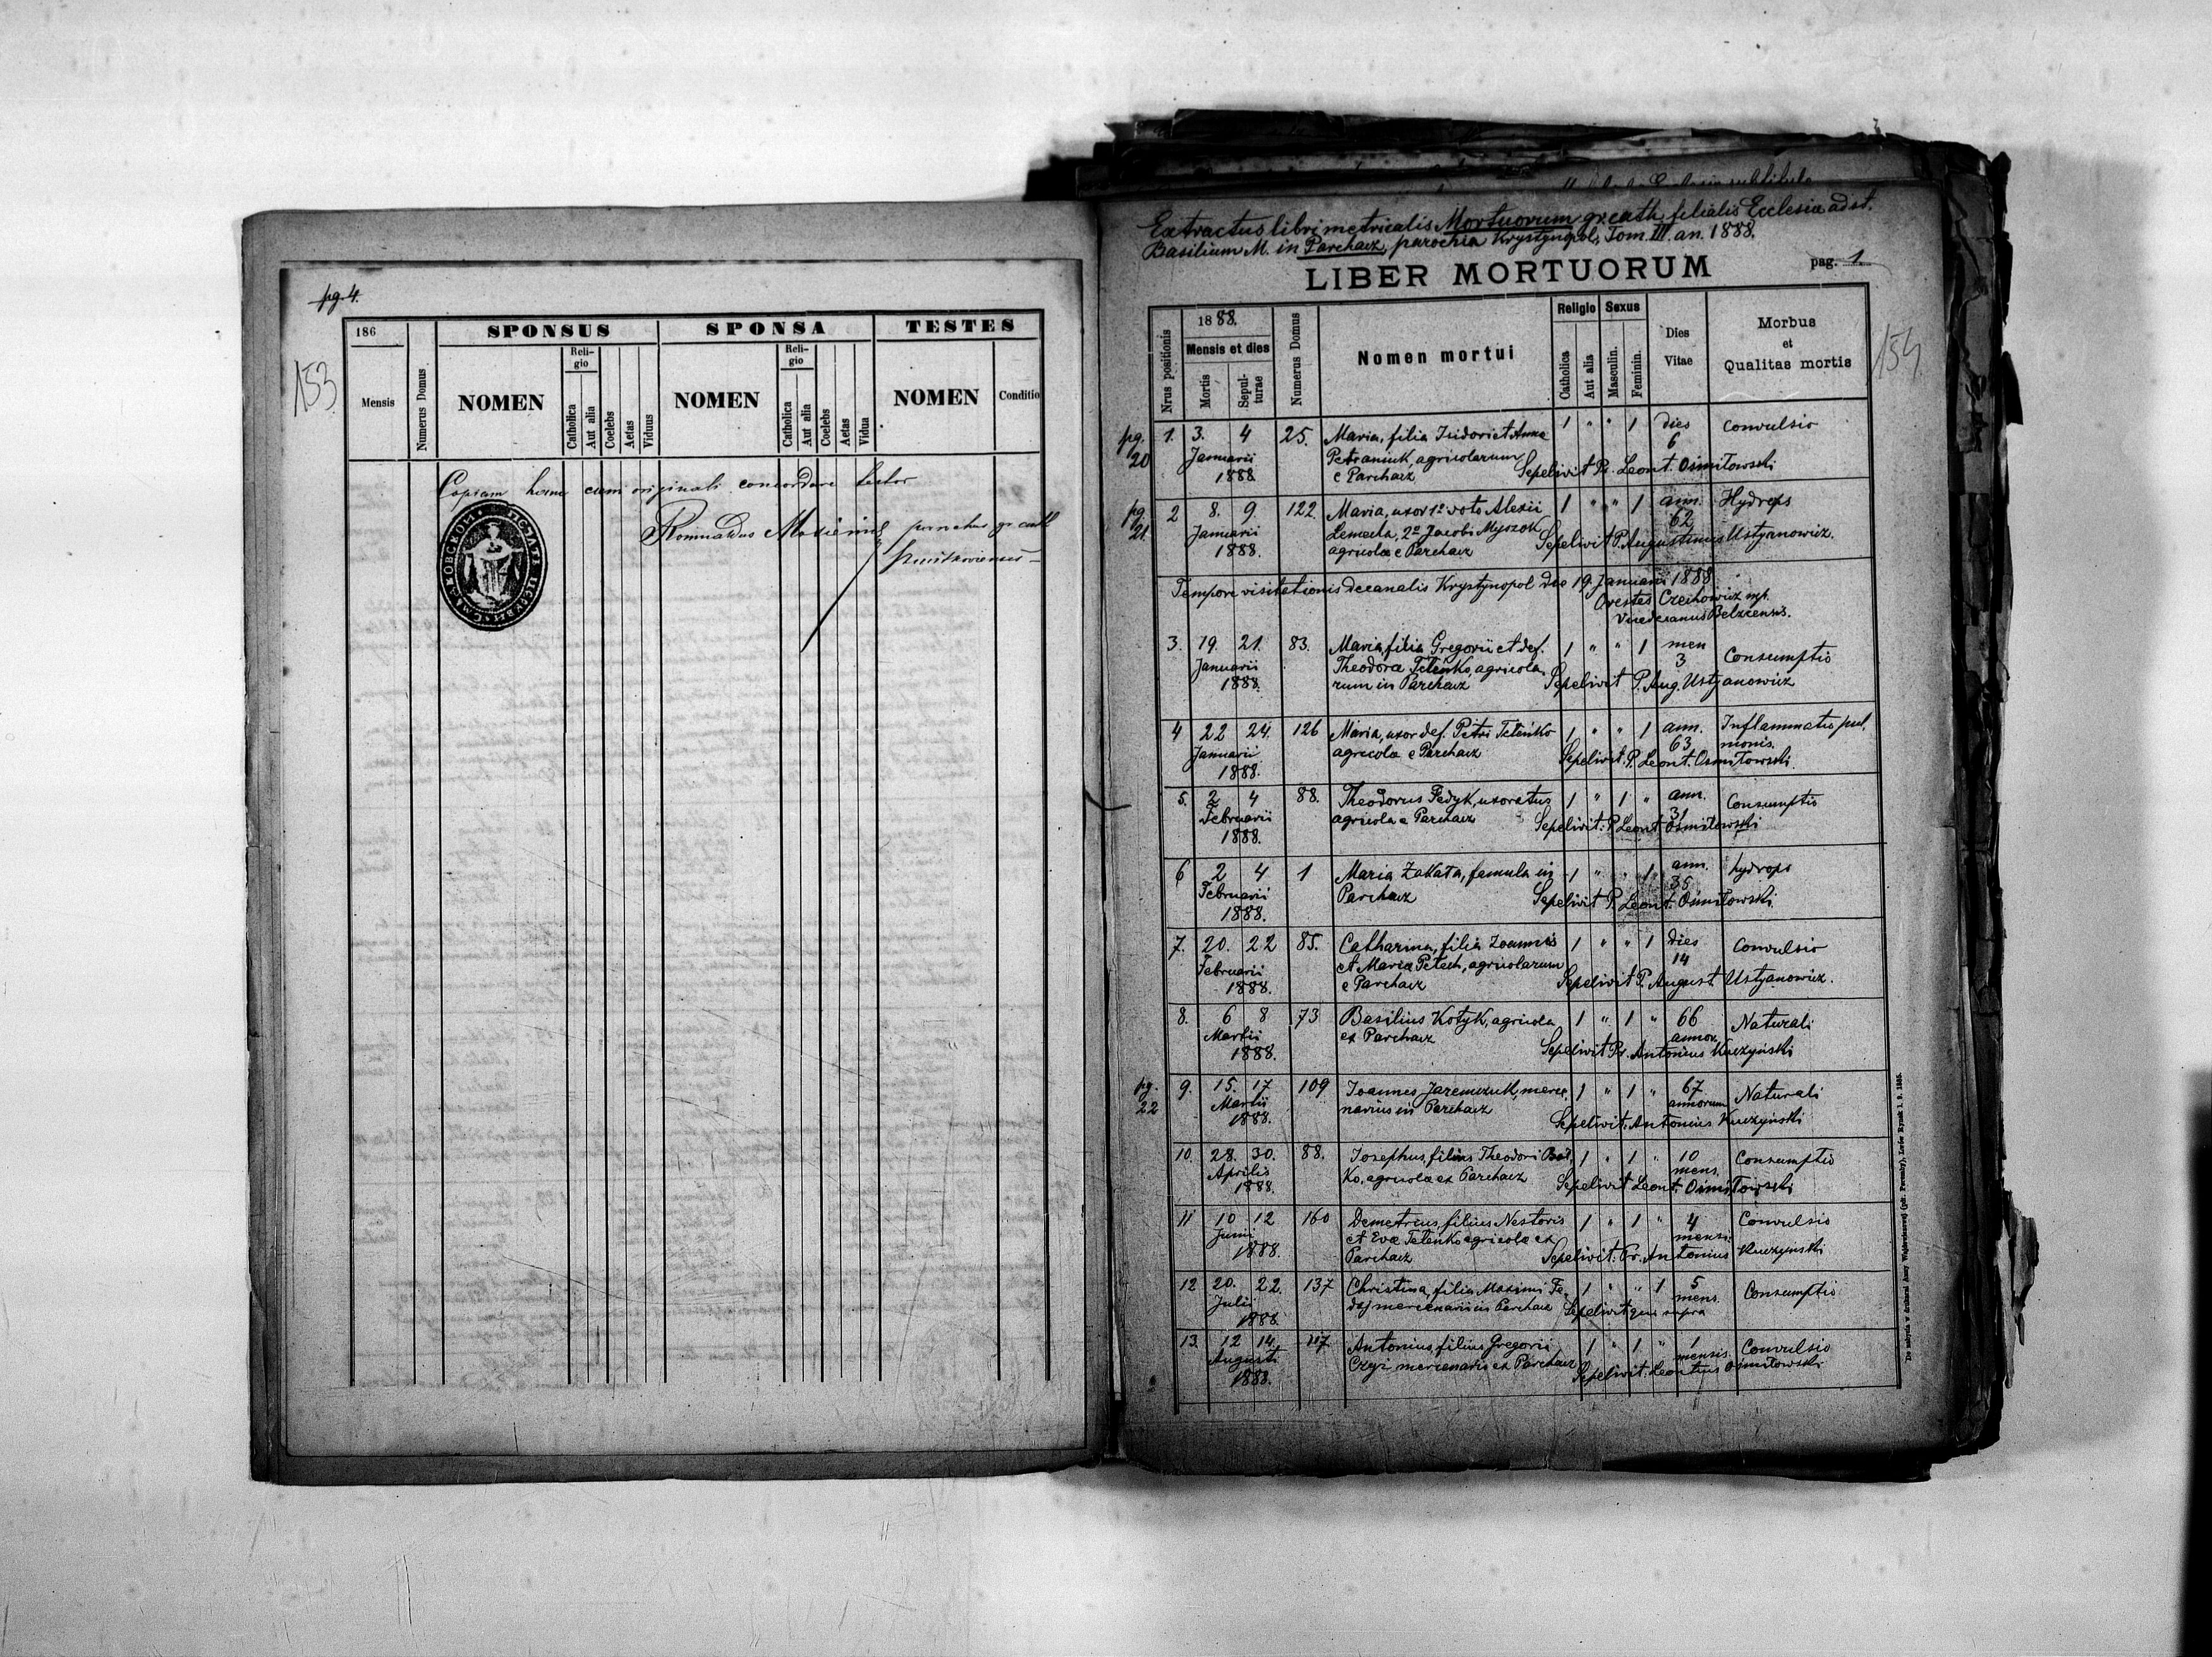 pg. 4.
153
186
SPONSUS
SPONSA
TESTES
Mensis
Numerus Domus
NOMEN
Religio
Catholica
Aut alia
Coelebs
Aetas
Viduus
NOMEN
Religio
Catholica
Aut alia
Coelebs
Aetas
Vidua
NOMEN
Conditio
Copiam hanc cum originali concordare testor
Romualdus
parochus gr. cath.
Extractus libri metricalis Mortuorum gr. cath. filialis Ecclesiae ad st.
Basilium M. in Parchacz, parochia Krystynopol, Tom. III. an. 1888.
LIBER MORTUORUM
pag. 1.
154
Nrus positionis
1888.
Mensis et dies
Mortis
Sepulturae
Numerus Domus
Nomen mortui
Religio
Catholica
Aut alia
Sexus
Masculin.
Feminin.
Dies
Vitae
Morbus
et
Qualitas mortis
pg. 20
1. 3. 4 25. Maria, filia Isidori et Anna 1 " " 1 dies Convulsio
Januarii Petraniuk, agricolarum 6
1888 e Parchacz Sepelivit Pr. Leont. Osmiłowski
pg. 21.
2 8. 9. 122. Maria, uxor 1º voto Alexii 1 " " 1 ann. Hydrops
Januarii Lemecha, 2º Jacobi Myszok 62
1888. agricolae e Parchacz Sepelivit P. Augustinus Ustyanowicz.
Tempore visitationis decanalis Krystynopol die 19. Januarii 1888
Orestes Czechowicz mp.
Vicedecanus Belzensis.
3. 19. 21. 83. Maria, filia Gregorii et def. 1 " " 1 men Consumptio
Januarii Theodora Teleńko, agricola 3
1888. rum in Parchacz Sepelivit P. Aug. Ustyanowicz
4 22 24. 126 Maria, uxor def. Petri Teleńko 1 " " 1 ann. Inflammatio pul.
Januarii agricola e Parchacz 63 monis.
1888. Sepelivit. P. Leont. Osmiłowski.
5. 2 4 88. Theodorus Fedyk, uxoratus 1 " 1 " ann. Consumptio
Februarii agricola e Parchacz 31
1888. Sepelivit: P. Leont. Osmiłowski
6 2 4 1 Maria Zakała, famula in 1 " " 1 ann. hydrops
Februarii Parchacz 35
1888. Sepelivit P. Leont. Osmiłowski
7. 20. 22 85. Catharina, filia Ioannis 1 " " 1 dies Convulsio
Februarii et Maria Petech, agricolarum 14
1888. e Parchacz Sepelivit P. August. Ustyanowicz.
8. 6 8 73 Basilius Kotyk, agricola 1 " 1 " 66 Naturali
Martii ex Parchacz annor.
1888. Sepelivit Pr. Antonius Kuczyński
pg. 22
9. 15. 17 109 Ioannes Jaremczuk, merce 1 " 1 " 67 Naturali
Martii narius in Parchacz annorum
1888. Sepelivit. Antonius Kuczyński
10. 28. 30. 88. Iosephus, filius Theodori 1 " 1 " 10 Consumptio
Aprilis ko, agricolae ex Parchacz mens.
1888. Sepelivit Leont. Osmiłowski
11 10 12 160 Demetrius, filius Nestoris 1 " 1 " 4 Convulsio
Junii et Eva Teleńko agricolae ex mens.
1888. Parchacz Sepelivit: Pr. Antonius Kuczyński
12 20. 22. 137 Christina, filia Maximi Fe 1 " " 1 5 Consumptio
Julii mercenarii in Parchacz mens.
1888. Sepelivit qui supra
13. 12 14. 117 Antonius, filius Gregorii 1 " 1 " 1 Convulsio
Augusti Czyż mercenarii ex Parchacz mensis.
1888. Sepelivit. Leontius Osmiłowski